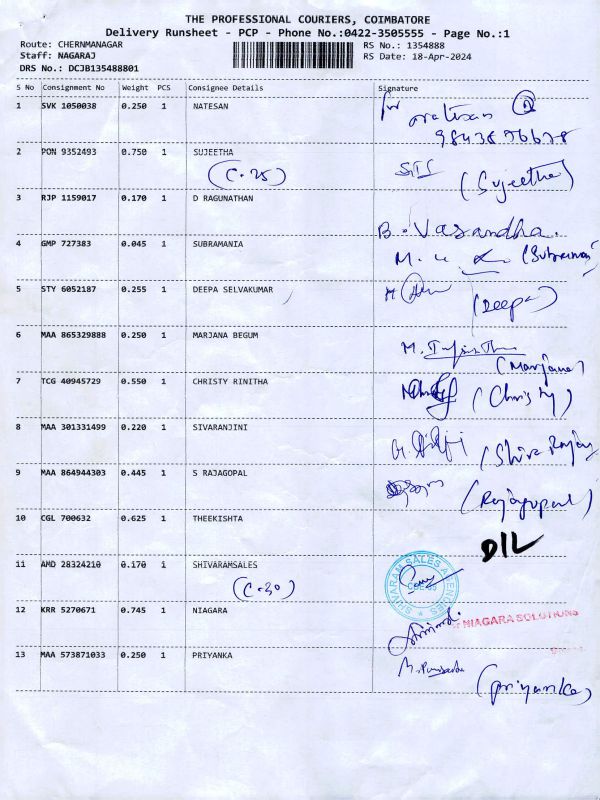 THE PROFESSIONAL COURIERS, COIMBATORE
Delivery Runsheet - PCP - Phone No.:0422-3505555 - Page No.:1
Route: CHERNMANAGAR RS No.: 1354888
Staff: NAGARAJ RS Date: 18-Apr-2024
DRS No.: DCJB135488801
S No Consignment No Weight PCS Consignee Details Signature
1 SVK 1050038 0.250 1 NATESAN for natesan
2 PON 9352493 0.750 1 SUJEETHA (Sujeetha)
(C.25)
3 RJP 1159017 0.170 1 D RAGUNATHAN B. Vasandha.
4 GMP 727383 0.045 1 SUBRAMANIA
5 STY 6052187 0.255 1 DEEPA SELVAKUMAR (Deepa)
6 MAA 865329888 0.250 1 MARJANA BEGUM (Marjana)
7 TCG 40945729 0.550 1 CHRISTY RINITHA (Christy)
8 MAA 301331499 0.220 1 SIVARANJINI
9 MAA 864944303 0.445 1 S RAJAGOPAL (Rajagopal)
10 CGL 700632 0.625 1 THEEKISHTA D/L
11 AMD 28324210 0.170 1 SHIVARAMSALES SHIVARAM SALES AGENCIES
(C.30)
12 KRR 5270671 0.745 1 NIAGARA NIAGARA SOLUTIONS
13 MAA 573871033 0.250 1 PRIYANKA (priyanka)